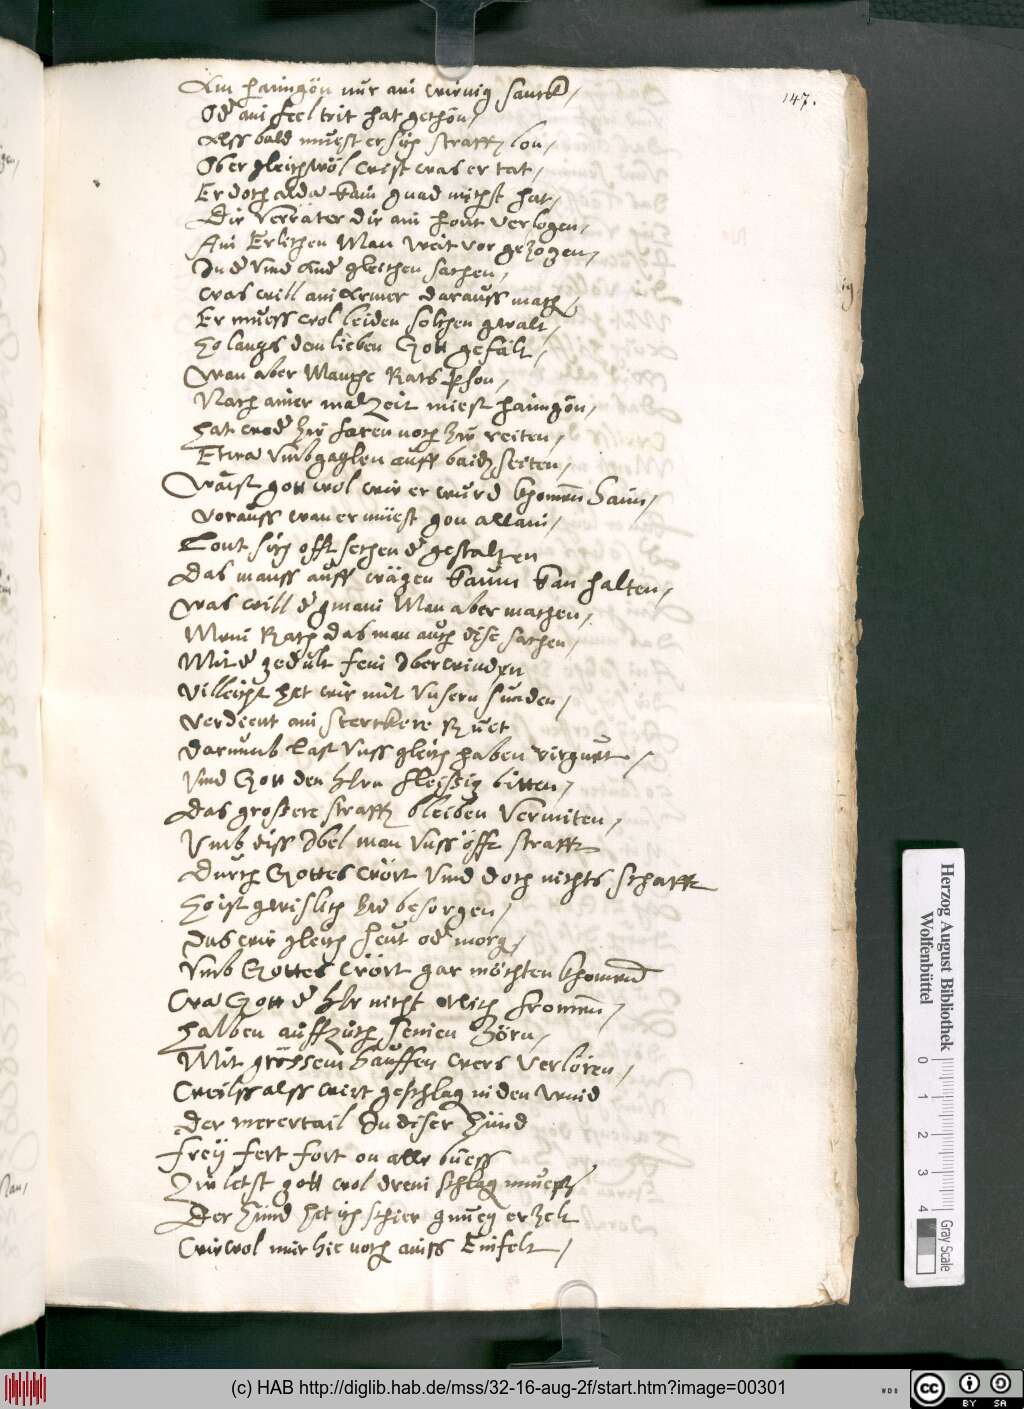 147.
Am haimgön nur ain wenig sanckh,
Od ain feel trit hat gethon,
Alss bald muest er sein straff lon,
Ob er gleichwol wist was er tat,
Er doch alda kain gnad nichst hat,
Dir Verräter dir ain hout verlogen,
Ain Erlichen Man weit vorgezogen,
In d Vnd And gleichen sachen,
Was will ain Armer darauss mach
Er muess wol leiden solchen gwalt,
So langs dem lieben Gott gefält,
Wan aber Manche Rats pson,
Nach ainer malzeit miest haimgön,
hat wed zu faren noch zu reiten,
Etwa Vmbgaglen auff baid seiten,
Waist gott wol wie er wurd khomen haim,
Vorauss wan er müest gon allain,
Lont sich offt sechen d gestalten
Das mans auff wägen kaum kan halten,
Was will d gmain Man aber machen,
Mein Rath das man auch dise sachen,
Mit d gedult fein Vberwinden
Villeicht hat wir mit Vnsern sunden,
Verdient ain sterckere Ruet
Darumb Last Vnss gleich haben virguet,
Vnd Gott den hern fleissig bitten,
Das grossere straff bleiben Vermiten,
Vmb diss Vbel man Vnss offt strafft
Durch Gottes wort Vnd doch nichts schafft
So ist gwislich zu besorgen,
Das wir gleich heut od morg
Vmb Gottes Wort gar möchten khomen
Wa Gott d her nicht Etlich fromen,
halben auffzuch seinen Zorn,
Mit grossem hauffen wers verloren,
Weilss alss wirt geschlag in den wind
Der merertail In diser Sünd
frey fert fort on alle buess
Zu letst gott wol drein schlag muess
Der Sünd hat ich schier gnueg erzelt
Wiewol mir hie noch ainss Einfelt,
Herzog August Bibliothek
Wolfenbüttel
0 1 2 3 4
Gray Scale
(c) HAB http://diglib.hab.de/mss/32-16-aug-2f/start.htm?image=00301
WDB
cc BY SA